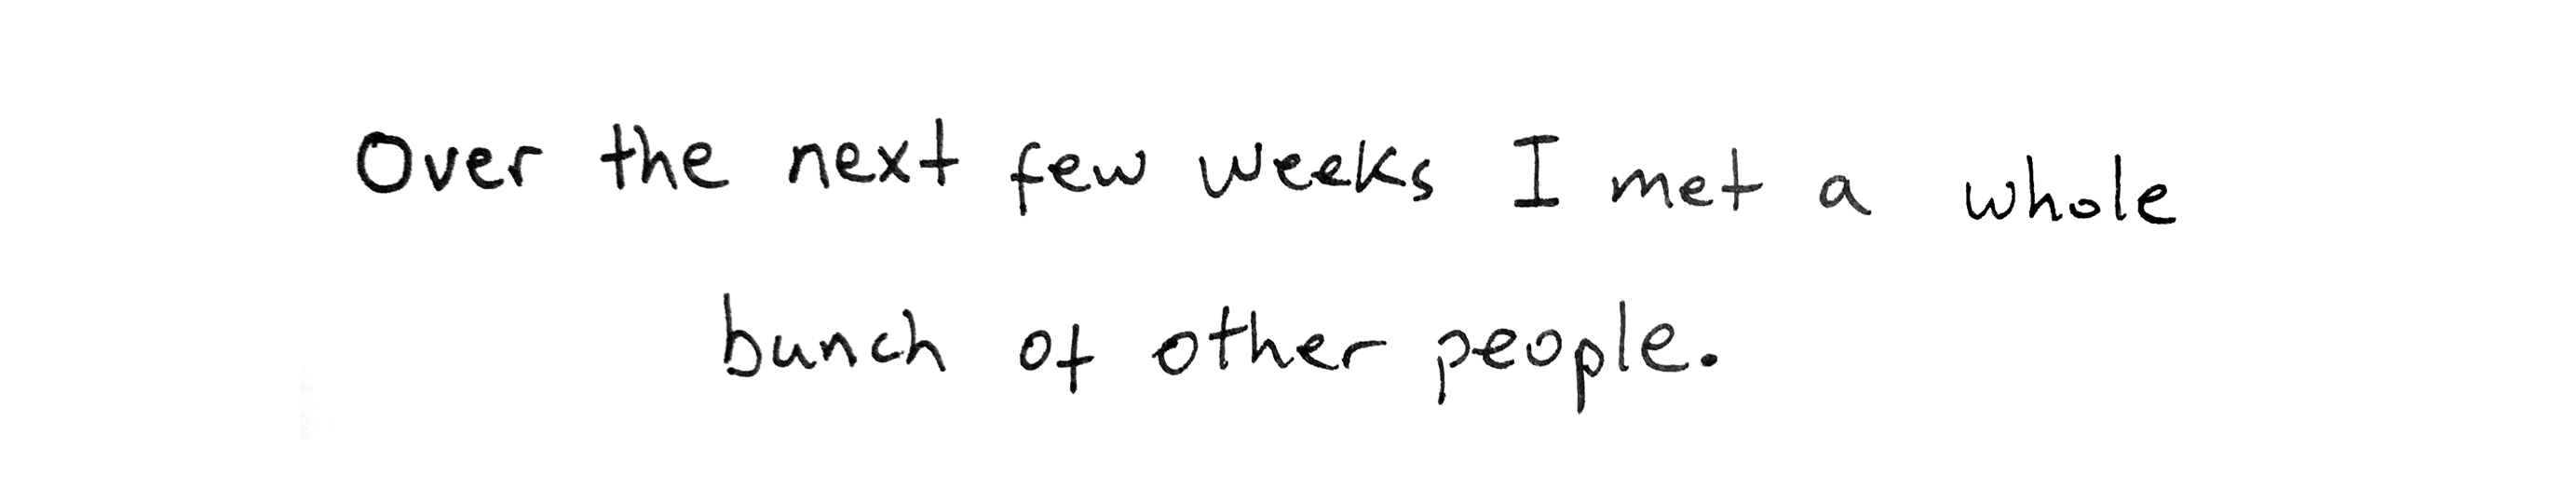 Over the next few weeks I met a whole
bunch of other people.